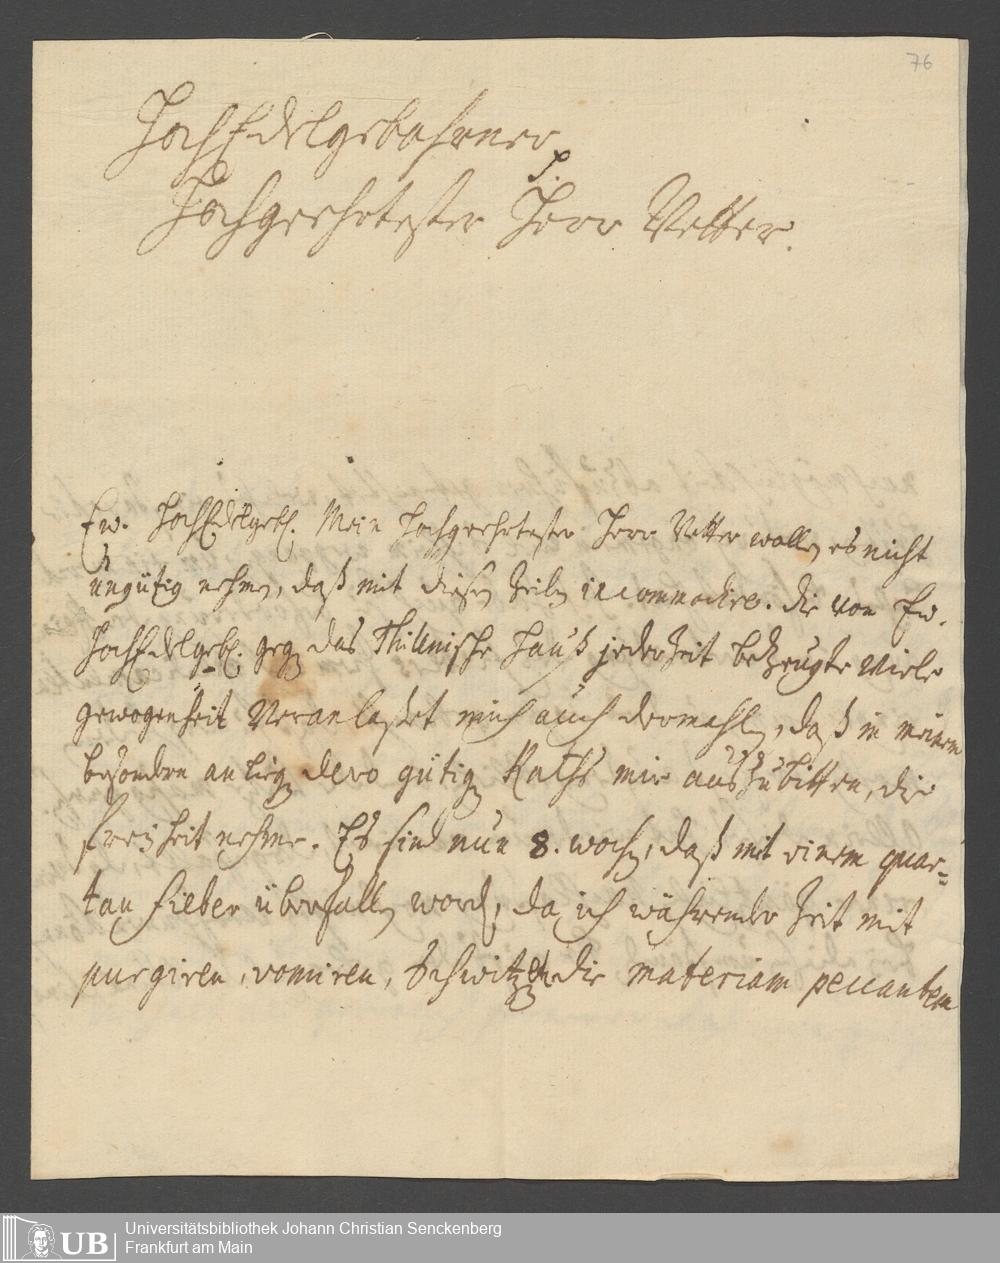 76
HochEdelgebohrner p.
Hochgeehrtester Herr Vetter.
Ew. HochEdelgeb. Mein Hochgeehrtester Herr Vetter wollen es nicht
ungütig nehmen, daß mit diesen Zeilen incommodire. die von Ew.
HochEdelgeb. gegen das Thillenische Hauß jederzeit bezeugte viele
gewogenheit Veranlaßet mich auch dermahlen, daß in meinem
besondern anliegen dero gütigen Raths mir auszubitten, die
freyheit nehme. Es sind nun 8. wochen, daß mit einem quar=
tan fieber überfallen worden, da ich währender Zeit mit
purgiren, vomiren, schwitzen die materiam peccantem
UB
Universitätsbibliothek Johann Christian Senckenberg
Frankfurt am Main